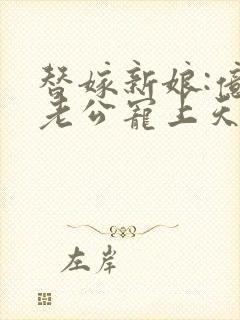 替嫁新娘:億
老公寵上天
左岸